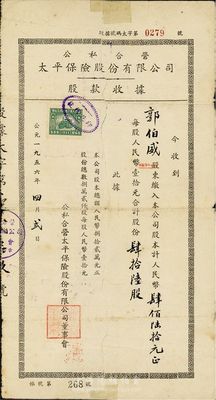 股據號碼太字第 0279 號
公私合營
太平保險股份有限公司
股款收據
今收到
郭伯威股東繳入本公司股本計人民幣肆佰陸拾元正
每股人民幣壹拾元合計股份肆拾陸股
此據
本公司股本總額人民幣
股份總數
公私合營太平保險股份有限公司董事會
公元一九五六年四月貳日
根據第 268 號